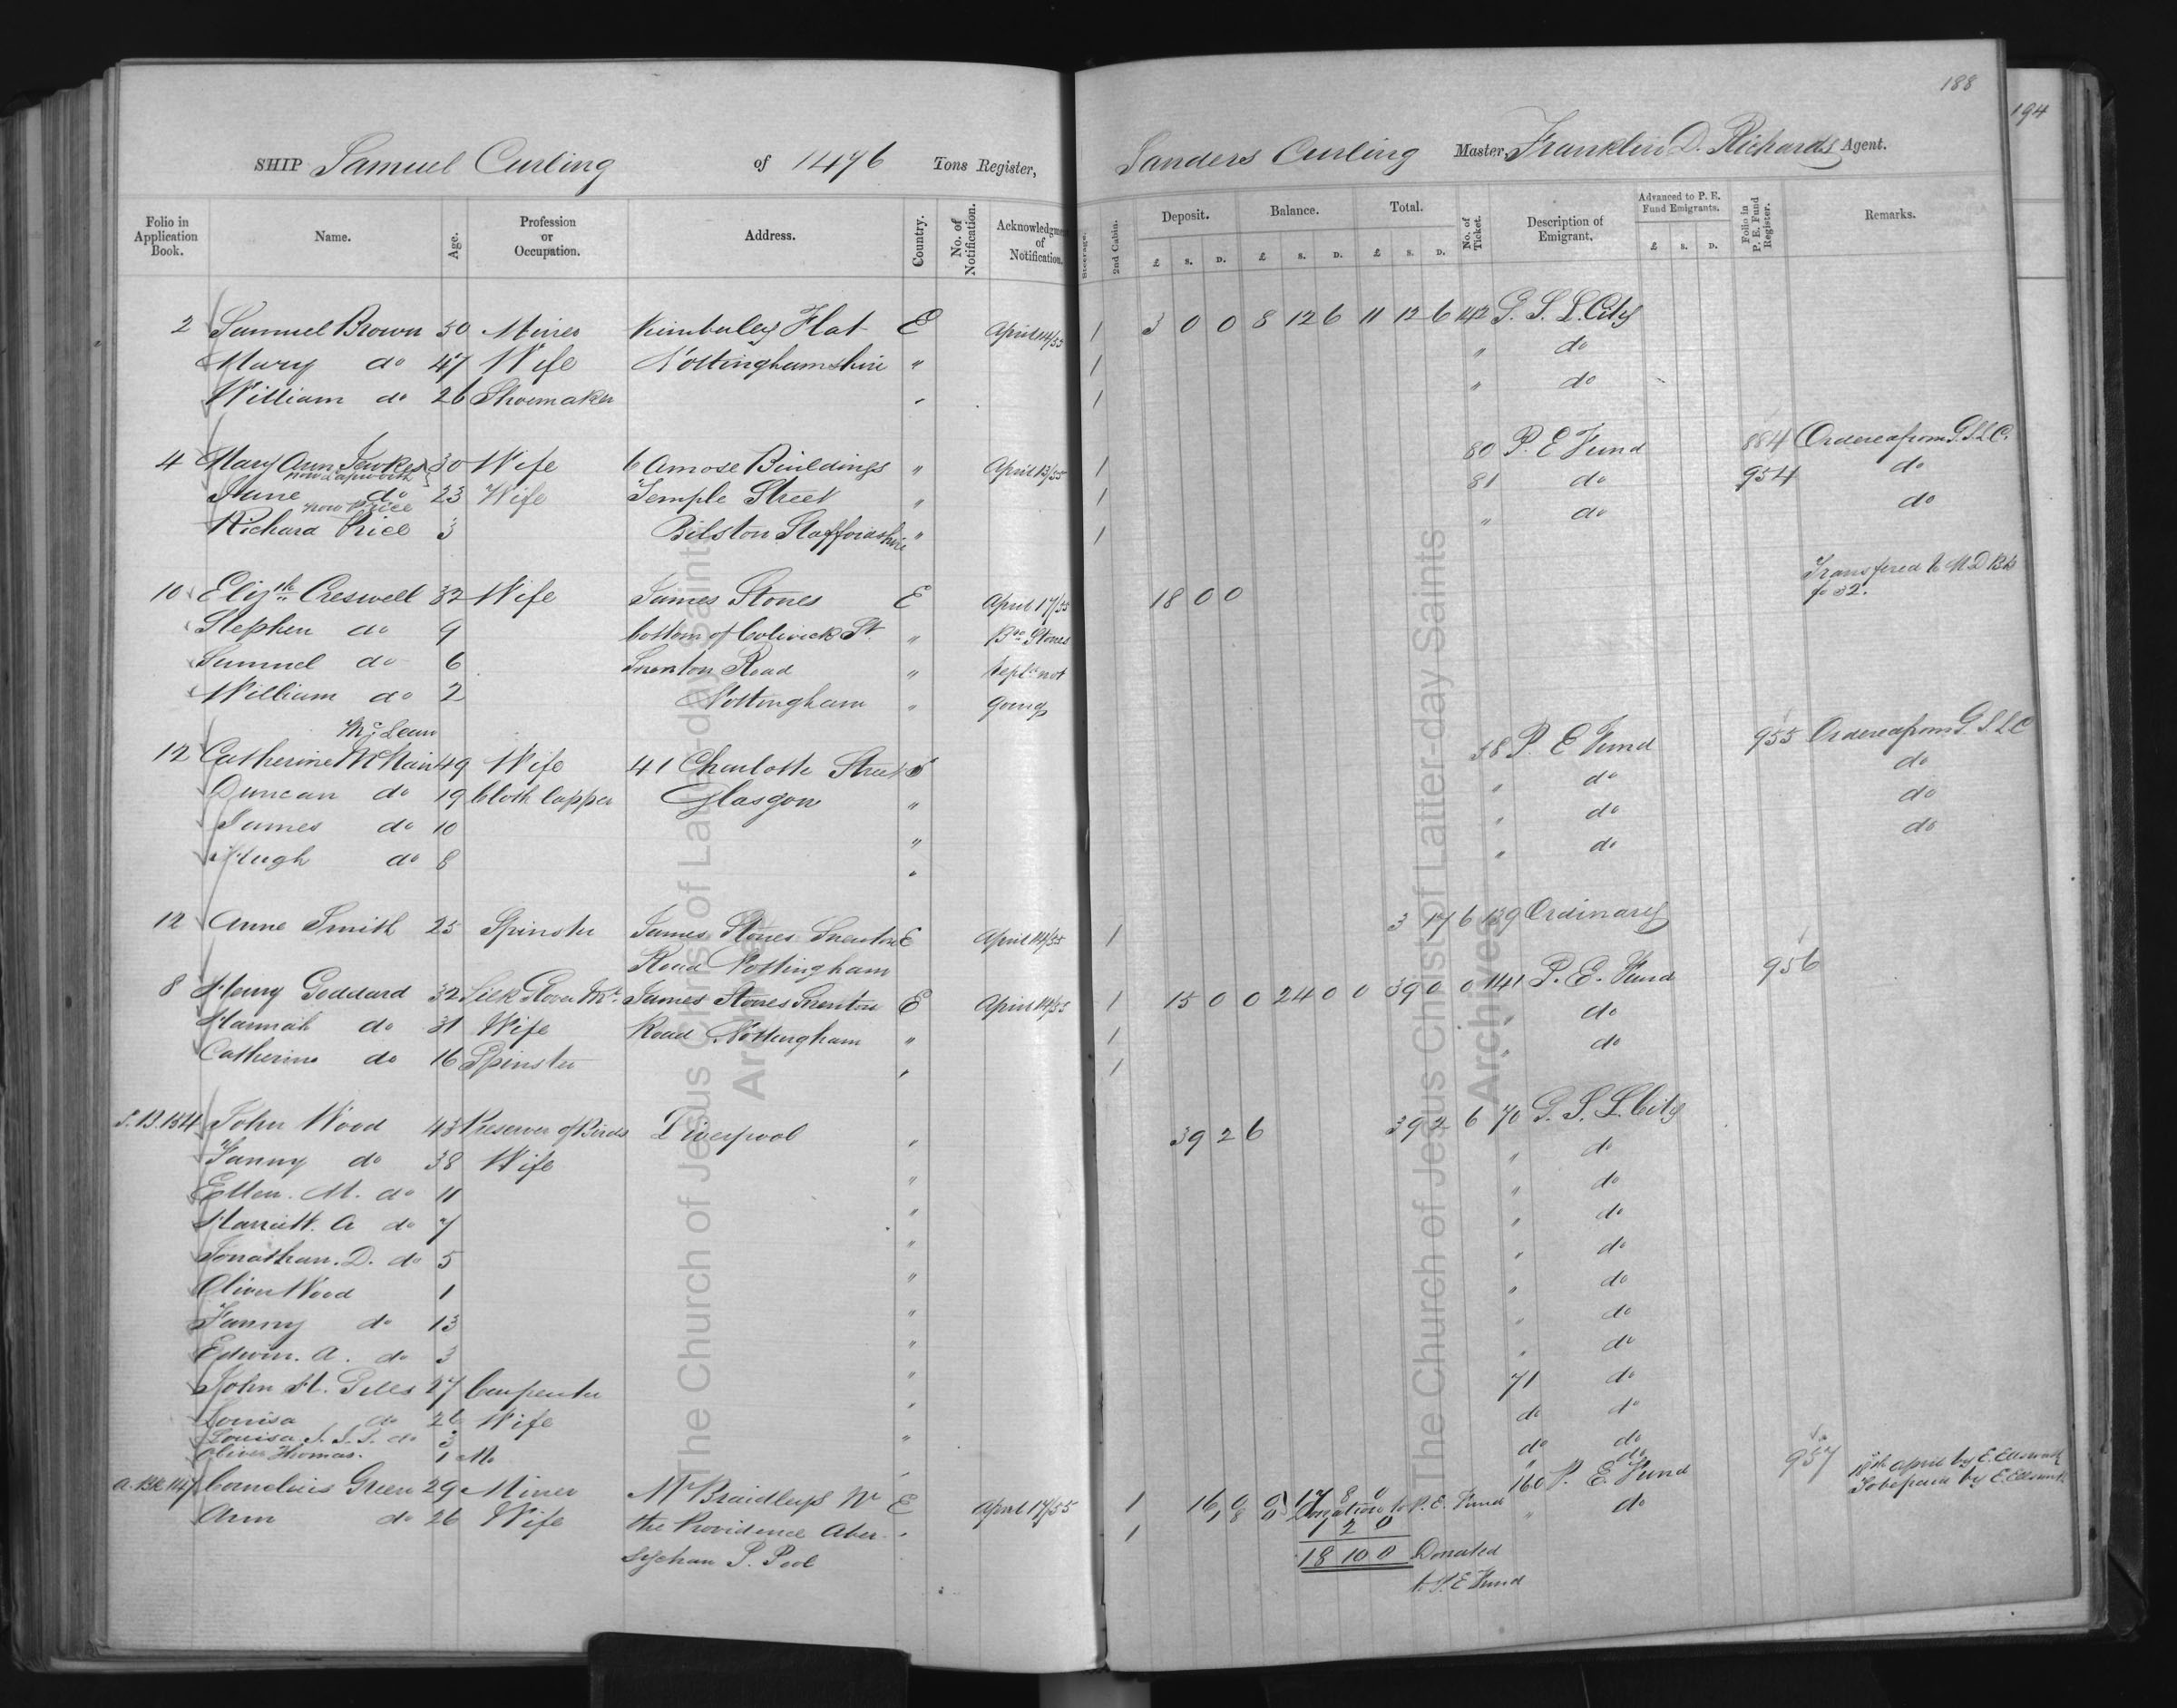 188
194
SHIP Samuel Curling of 1496 Tons Register, Sanders Curling Master, Franklin D. Richards Agent.
Folio in Application Book. Name. Age. Profession or Occupation. Address. Country. No. of Notification. Acknowledgment of Notification. Steerage. 2nd Cabin. Deposit. £ S. D. Balance. £ S. D. Total. £ S. D. No. of Ticket. Description of Emigrant. Advanced to P. E. Fund Emigrants. £ S. D. Folio in P. E. Fund Register. Remarks.
2 Samuel Brown 50 Miner Kimberley Flat E April 14/55 1 3 0 0 8 12 6 11 12 6 142 G. S. L. City
Mary do 47 Wife Nottinghamshire " 1 " do
William do 26 Shoemaker " 1 " do
4 Mary Ann 30 Wife 6 Amose Buildings " April 13/55 1 80 P. E Fund 884 Ordered from G.S.L.C.
Jane do 23 Wife Temple Street " 1 81 do 954 do
now Price
Richard Price 3 Bilston Staffordshire " 1 " do do
10 Elizth Creswell 32 Wife James Stones E April 17/55 18 0 0 Transfered to
fo 32.
Stephen do 9 bottom of St. " Bro Stones
Samuel do 6 Snenton Road " not
William do 2 Nottingham " going
McLean
12 Catherine McNair 49 Wife 41 Charlotte Street S 58 P. E Fund 955 Ordered from G S L C
Duncan do 19 Cloth lapper Glasgow " " do do
James do 10 " " do do
Hugh do 8 " " do do
12 Anne Smith 25 Spinster James Stones Snenton E April 14/55 1 3 17 6 139 Ordinary
Road Nottingham
8 Henry Goddard 32 Silk Glover Mr James Stones Snenton E April 14/55 1 15 0 0 24 0 0 39 0 0 141 P. E. Fund 956
Hannah do 31 Wife Road Nottingham " 1 " do
Catherine do 16 Spinster " 1 " do
S.B.134 John Wood 43 Preserver of Birds Liverpool " 39 2 6 39 2 6 70 G. S. L. City
Fanny do 38 Wife " " do
Ellen. M. do 11 " " do
Harriett. A do 7 " " do
Jonathan. D. do 5 " " do
Oliver Wood 1 " " do
Fanny do 13 " " do
Edwin. A. do 3 " " do
John H. Giles 27 Carpenter " 71 do
Louisa do 26 Wife " do do
Louisa do 3 do do
Oliver Thomas. 1 " do
Cornelius Green 29 Miner Mr Nr E April 17/55 1 16 0 0 17 8 0 160 P. E. Fund 957 18th April by E. Ellsworth
Ann do 26 Wife the Providence Aber " 1 8 0 Donation to P. E. Fund " do To be paid by E. Ellsworth
sychan P. Pool
1 2 0
18 10 0 Donated
to P. E Fund
The Church of Jesus Christ of Latter-day Saints
Archives
The Church of Jesus Christ of Latter-day Saints
Archives